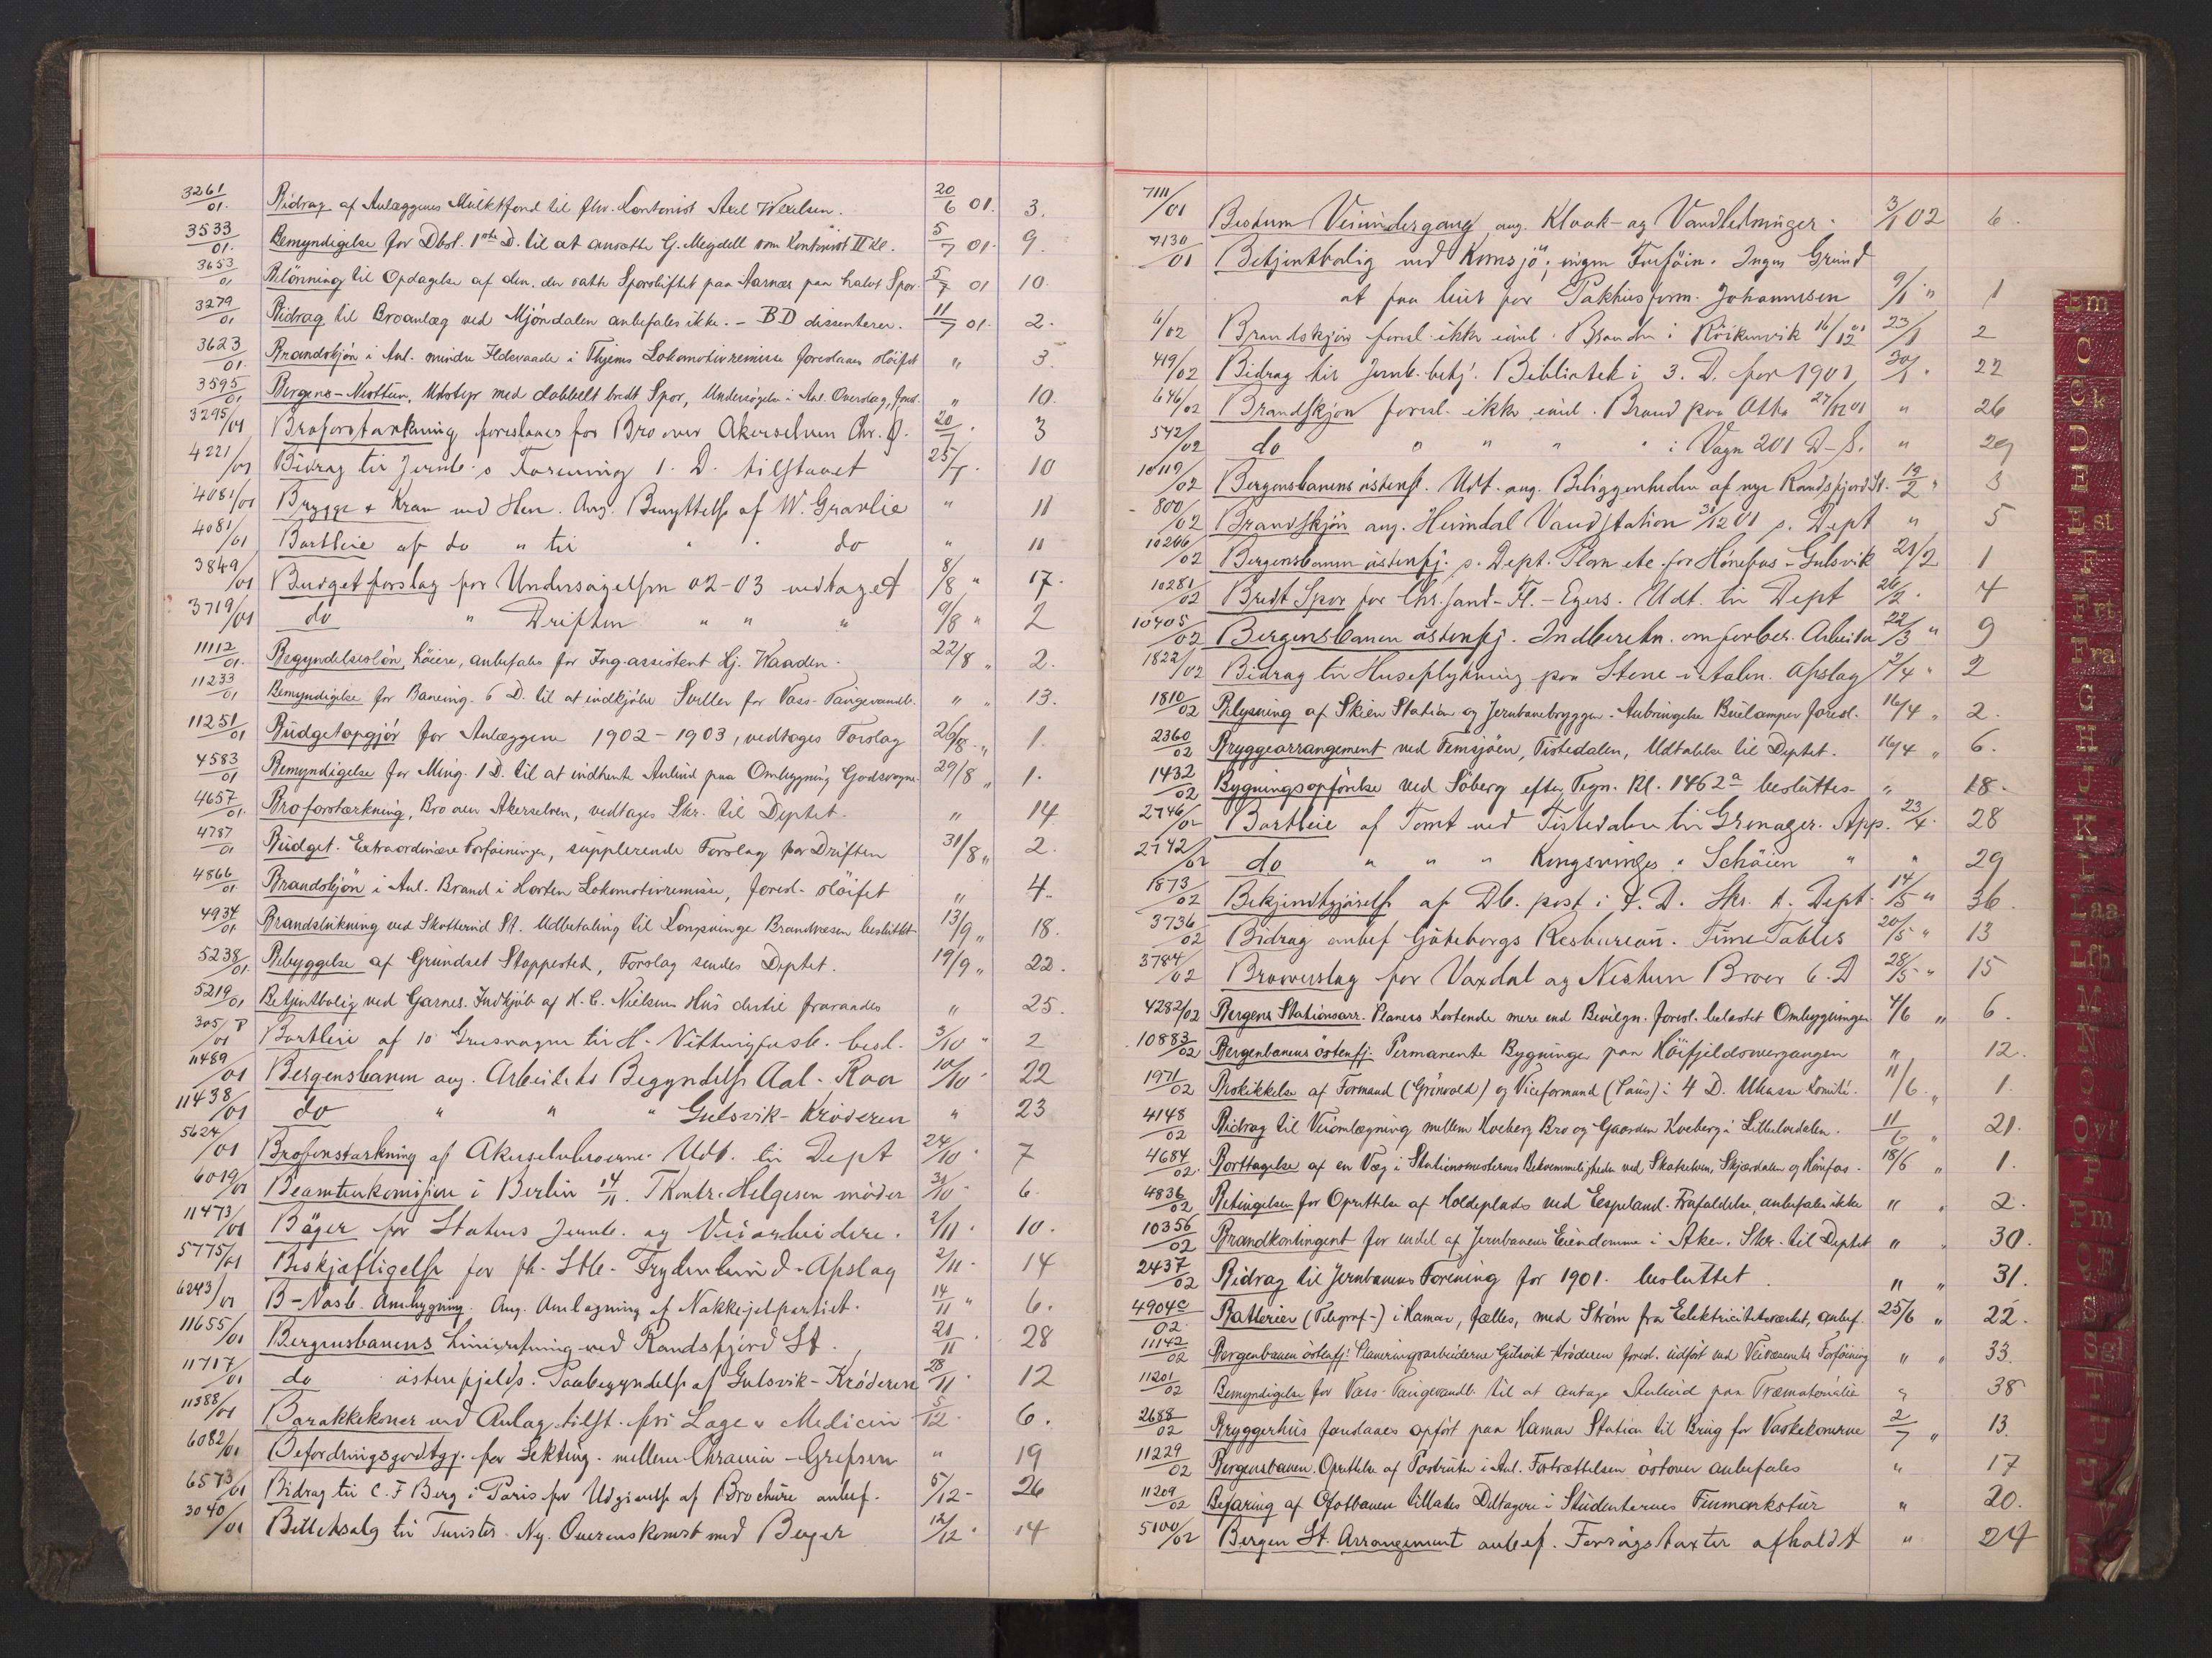 3261/01. Bidrag af Anlæggenes Mulktfond til fhv. Kontorist Axel Wexelsen. 20/6 01. 3.
3533/01. Bemyndigelse for Dbst. 1ste D. til at ansætte G. Meydell som Kontorist II Kl. 5/7 01. 9.
3653/01 Belönning til Opdagelse af den, der satte Sporskiftet paa Aarnæs paa halvt Spor. 5/7 01 10.
3279/01 Bidrag til Broanlæg ved Mjöndalen anbefales ikke. - BD dissenterer. 11/7 01. 2.
3623/01. Brandskjön i Anl. mindre Ildsvaade i Thjems Lokomotivremisse foreslaaes slöifet " 3.
3595/01 Bergens-Nesttun, Udstyr med dobbelt bredt Spor, Undersögelse i Anl. Overslag, forel. " 10.
3295/01 Broforstærkning foreslaaes for Bro over Akerselven Chr. Ø. 20/7 . 3
4221/01 Bidrag til Jernb.s Forening 1. D. tilstaaet 25/7 . 10
4081/01 Brygge & Kran ved Hen. Ang. Benyttelse af W. Gravlie " 11
4081/01 Bortleie af do " til " " do " 11
3849/01 Budgetforslag for Undersøgelsen 02-03 vedtaget 8/8 " 17.
3719/01 do " Driften " " " 9/8 " 2
11112/01. Begyndelseslön, höiere, anbefales for Ing.assistent Hj. Waaden. 22/8 " 2.
11233/01 Bemyndigelse for Baneing. 6 D. til at indkjöbe Sviller for Voss-Taugevandb. " " 13.
11251/01 Budgetopgjör for Anlæggene 1902-1903, vedtages Forslag 26/8 " 1.
4583/01 Bemyndigelse for Ming. 1 D. til at indhente Anbud paa Ombygning Godsvogne. 29/8 " 1.
4657/01. Broforstærkning, Bro over Akerselven, vedtages Skr. til Deptet. " 14
4787/01 Budget. Extraordinære Forföininger, supplerende Forslag for Driften 31/8 " 2.
4866/01 Brandskjön i Anl. Brand i Horten Lokomotivremisse, foresl. slöifet " 4.
4934/01 Brandslukning ved Skotterud St. Udbetaling til Kongsvinge Brandvæsen besluttet. 13/9 " 18.
5238/01 Bebyggelse af Grundset Stoppested, Forslag sendes Deptet. 19/9 " 22.
5219/01 Betjentbolig ved Garnes. Indkjöb af H. C. Nielsens Hus dertil fraraades " 25.
305/01 Bortleie af 10 Grusvogne til H- Vittingfosb. besl. 3/10 " 2
11489/01 Bergensbanen ang. Arbeidets Begyndelse Aal - Roa 10/10 " 22
11438/01 do " " " Gulsvik-Kröderen " 23
5624/01 Broforstærkning af Akerselvbroerne. Udt. til Dept 24/10 " 7
6019/01 Beamtenkomission i Berlin 14/11. TKontr. Helgesen möder 31/10 " 6.
11473/01 Böger for Statens Jernb. og Veiarbeidere. 2/11 . 10.
5775/01 Beskjæftigelse for fh. Stb. Frydenlund. Afslag 2/11 . 14
6243/01 B-Vosb. Ombygning. Ang. Omlægning af Nakkejelpartiet. 14/11 " 6.
11655/01 Bergensbanens Linieretning ved Randsfjord St. 21/11 . 28
11717/01 do østenfjelds. Paabegyndelse af Gulsvik-Kröderen 28/11 . 12
11388/01 Barakkekoner ved Anlæg tilst. fri Læge & Medicin 5/12 . 6.
6082/01 Befordringsgodtgj. for Sekting. mellem Chrania - Grefsen " 19
6573/01 Bidrag til C. F Berg i Paris for Udgivelse af Brochure anbef. 5/12 - 26
3040/01 Billetsalg til Turister. Ny. Overenskomst med Beyer 12/12 . 14
7111/01 Bestum Veiundergang ang. Kloak- og Vandledninger. 3/1 02 6.
7130/01 Betjentbolig ved Kornsjö; ingen Forföin. Ingen Grund
at faa leiet for Pakhusform. Johannesen 9/1 " 1
6/02 Brandskjön foresl. ikke indl. Branden i Röikenvik 16/12 01 23/1 2
419/02 Bidrag til Jernb. betj. Bibliotek i 3. D. for 1901 30/1 " 22
646/02 Brandskjøn foresl. ikke indl. Brand paa Otta 27/12 01 " 26
542/02 do " " " " i Vogn 201 D-S. " 29
10119/02 Bergensbanens østenfj. Udt. ang. Beliggenheden af nye Randsfjord St. 13/2 " 3
800/02 Brandskjön ang. Heimdal Vandstation 31/12 01 s. Dept " 5
10266/02 Bergensbanen østenfj. s. Dept. Plan etc for Hönefos - Gulsvik 21/2 1
10281/02 Bredt Spor for Chr.sand-Fl.-Egers. Udt. til Dept 26/2 . 4
10405/02 Bergensbanen østenfj. Indberetn. om forber. Arbeider 22/3 " 9
1822/02 Bidrag til Huseflytning paa Stene i Aalen. Afslag 7/4 " 2
1810/02 Belysning af Skien Station og Jernbanebryggen. Anbringelse Buelamper foresl. 16/4 " 2.
2360/02 Bryggearrangement ved Femsjöen, Tistedalen, Udtalelse til Deptet. 16/4 " 6.
1432/02 Bygningsopförelse ved Söberg efter Tegn. Bl. 1462a besluttes " 18.
2746/02 Bortleie af Tomt ved Tistedalen til Grenager. App. 23/4 . 28
2742/02 do " " " Kongsvinger " Schöien " " 29
1873/02 Bekjendtgjörelse af Db. post i 7. D. Skr. t. Dept. 14/5 " 36.
3736/02 Bidrag anbef Göteborgs Resbureau. Time Tables 20/5 " 13
3784/02 Brooverslag for Vaxdal og Nestun Broer 6. D 28/5 " 15
4282/02 Bergens Stationsarr. Planens Kostende mere end Bevilgn. foresl. belastet Ombygningen 4/6 " 6.
10883/02 Bergenbanens östenfj: Permanente Bygninger paa Höifjeldsovergangen " 12.
1971/02 Beskikkelse af Formand (Grönvold) og Viceformand (Paus) i 4 D. Ukasse Komité. 11/6 " 1.
4148/02 Bidrag til Veiomlægning mellem Kveberg Bro og Gaarden Kveberg i Lilleelvedalen. 11/6 " 21.
4684/02. Borttagelse af en Væg i Stationsmesternes Bekvemmeligheder ved Skotselven, Skjærdalen og Hönefos. 18/6 " 1.
4836/02 Betingelsen for Oprettelse af Holdeplads ved Espeland. Frafaldelse, anbefales ikke " " 2.
10356/02 Brandkontingent for endel af Jernbanens Eiendomme i Aker. Skr. til Deptet " " 30.
2437/02 Bidrag til Jernbanens Forening for 1901. besluttet " " 31.
4904c/02. Batterier (Telegraf-) i Hamar, fælles, med Ström fra Eelektricitetsværket, anbef. 25/6 " 22.
11142/02 Bergenbanen östenfj: Planeringsarbeiderne Gulsvik-Kröderen foresl. udfört ved Veivæsenets Forföining " " 33.
11201/02 Bemyndigelse for Voss-Taugevandb. til at antage Anbud paa Træmaterialier " 38
2688/02 Bryggerhus foreslaaes opfört paa Hamar Station til Brug for Vaskekonerne 2/7 " 13.
11229/02 Bergensbanen. Oprettelse af Postruter i Anl. Fortsættelsen östover anbefales " 17
11209/02 Befaring af Ofotbanen tillades Deltagere i Studenternes Finmarkstur " 20.
5100/02 Bergen St. Arrangement anbef. Forsøgstaxter afholdt " 24
Bm
C
Ck
D
E
Est
F
Frt
Fva
G
H
J
K
L
Laa
Lfh
M
N
O
Ovf
P
Pm
Q.R
S
Sgl
T
U
V